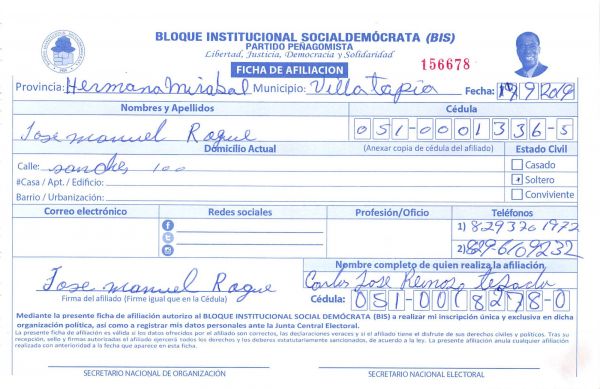 BLOQUE INSTITUCIONAL SOCIALDEMÓCRATA (BIS)
PARTIDO PEÑAGOMISTA
Libertad, Justicia, Democracia y Solidaridad
FICHA DE AFILIACION
156678
Provincia: Hermana Mirabal Municipio: Villa tapia Fecha: 9 2019
Nombres y Apellidos Cédula
Jose manuel Roque 051-0001336-5
Domicilio Actual (Anexar copia de cédula del afiliado) Estado Civil
Calle: sanches 100 Casado
#Casa / Apt. / Edificio: Soltero
Barrio / Urbanización: Conviviente
Correo electrónico Redes sociales Profesión/Oficio Teléfonos
1) 829 320 1972
2) 829-610 9232
Nombre completo de quien realiza la afiliación
Jose manuel Roque Carlos Jose Reinoso
Firma del afiliado (Firme igual que en la Cédula) Cédula: 051-0018278-0
Mediante la presente ficha de afiliación autorizo al BLOQUE INSTITUCIONAL SOCIAL DEMÓCRATA (BIS) a realizar mi inscripción única y exclusiva en dicha
organización política, así como a registrar mis datos personales ante la Junta Central Electoral.
La presente ficha de afiliación es válida si los datos ofrecidos por el afiliado son correctos, las declaraciones veraces y si el afiliado tiene el disfrute de sus derechos civiles y políticos. Tras su
recepción, sello y firmas autorizadas el afiliado ejercerá todos los derechos y los deberes estatutariamente sancionados, de acuerdo a la ley. La presente afiliación anula cualquier afiliación
realizada con anterioridad a la fecha que aparece en esta ficha.
SECRETARIO NACIONAL DE ORGANIZACIÓN SECRETARIO NACIONAL ELECTORAL